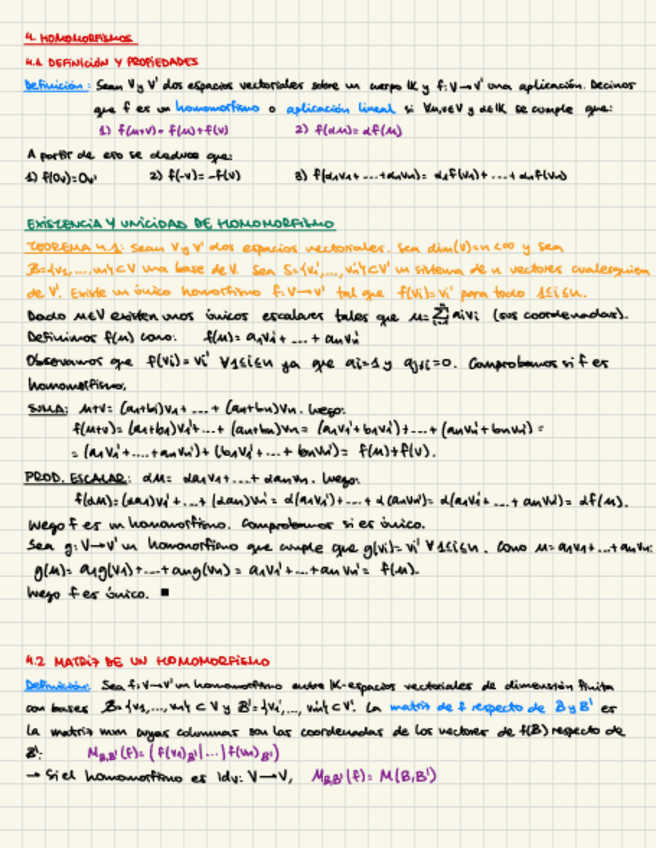 4. HOMOMORFISMOS
4.1 DEFINICIÓN Y PROPIEDADES
Definición: Sean V y V' dos espacios vectoriales sobre un cuerpo K y f: V→V' una aplicación. Decimos
que f es un homomorfismo o aplicación lineal si ∀u,v∈V y α∈K se cumple que:
1) f(u+v)= f(u)+f(v) 2) f(αu)= αf(u)
A partir de eso se deduce que:
1) f(0v)=0v' 2) f(-v)=-f(v) 3) f(α1v1+...+αnvn)= α1f(v1)+...+αnf(vn)
EXISTENCIA Y UNICIDAD DE HOMOMORFISMO
TEOREMA 4.1: Sean V y V' dos espacios vectoriales. Sea dim(V)=n<∞ y sea
B={v1,...,vn}⊂V una base de V. Sea S={v1',...,vn'}⊂V' un sistema de n vectores cualesquiera
de V'. Existe un único homorfismo f: V→V' tal que f(vi)=vi' para todo 1≤i≤n.
Dado u∈V existen unos únicos escalares tales que u=∑aivi (sus coordenadas).
Definimos f(u) como: f(u)= a1v1'+...+anvn'
Observamos que f(vi)=vi' ∀1≤i≤n ya que ai=1 y aj≠i=0. Comprobamos si f es
homomorfismo.
SUMA: u+v= (a1+b1)v1+...+(an+bn)vn. Luego:
f(u+v)= (a1+b1)v1'+...+(an+bn)vn'= (a1v1'+b1v1')+...+(anvn'+bnvn')=
= (a1v1'+...+anvn')+(b1v1'+...+bnvn')= f(u)+f(v).
PROD. ESCALAR: αu= αa1v1+...+αanvn. Luego:
f(αu)=(αa1)v1'+...+(αan)vn'= α(a1v1')+...+α(anvn')= α(a1v1'+...+anvn')= αf(u).
Luego f es un homomorfismo. Comprobamos si es único.
Sea g: V→V' un homomorfismo que cumple que g(vi)=vi' ∀1≤i≤n. Como u=a1v1+...+anvn:
g(u)= a1g(v1)+...+ang(vn)= a1v1'+...+anvn'= f(u).
Luego f es único. ■
4.2 MATRIZ DE UN HOMOMORFISMO
Definición: Sea f: V→V' un homomorfismo entre K-espacios vectoriales de dimensión finita
con bases B={v1,...,vn}⊂V y B'={v1',...,vm'}⊂V'. La matriz de f respecto de B y B' es
la matriz mxn cuyas columnas son las coordenadas de los vectores de f(B) respecto de
B': MB,B'(f)= (f(v1)B'|...|f(vn)B')
→ Si el homomorfismo es Idv: V→V, MB,B'(f)= M(B,B')